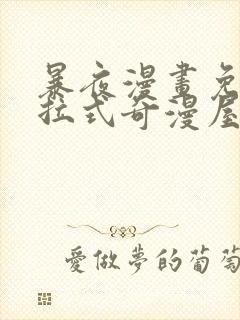 暴夜漫畫免
拉式奇漫屋
愛做夢的葡萄